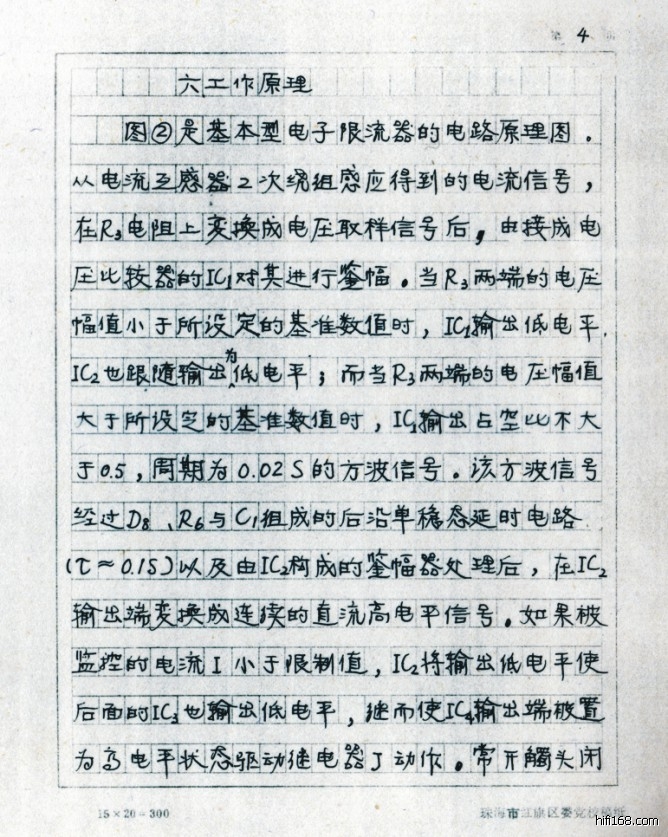 4
六工作原理
图②是基本型电子限流器的电路原理图．
从电流互感器2次绕组感应得到的电流信号，
在R3电阻上变换成电压取样信号后，由接成电
压比较器的IC1对其进行鉴幅．当R3两端的电压
幅值小于所设定的基准数值时，IC1输出低电平．
IC2也跟随输出为低电平；而当R3两端的电压幅值
大于所设定的基准数值时，IC1输出占空比不大
于0.5，周期为0.02S的方波信号．该方波信号
经过D8、R6与C1组成的后沿单稳态延时电路
（τ≈0.1S）以及由IC2构成的鉴幅器处理后，在IC2
输出端变换成连续的直流高电平信号．如果被
监控的电流I小于限制值，IC2将输出低电平使
后面的IC3也输出低电平，继而使IC4输出端被置
为高电平状态驱动继电器J动作．常开觸头闭
15×20=300
珠海市 区委党校稿纸
hifi168.com